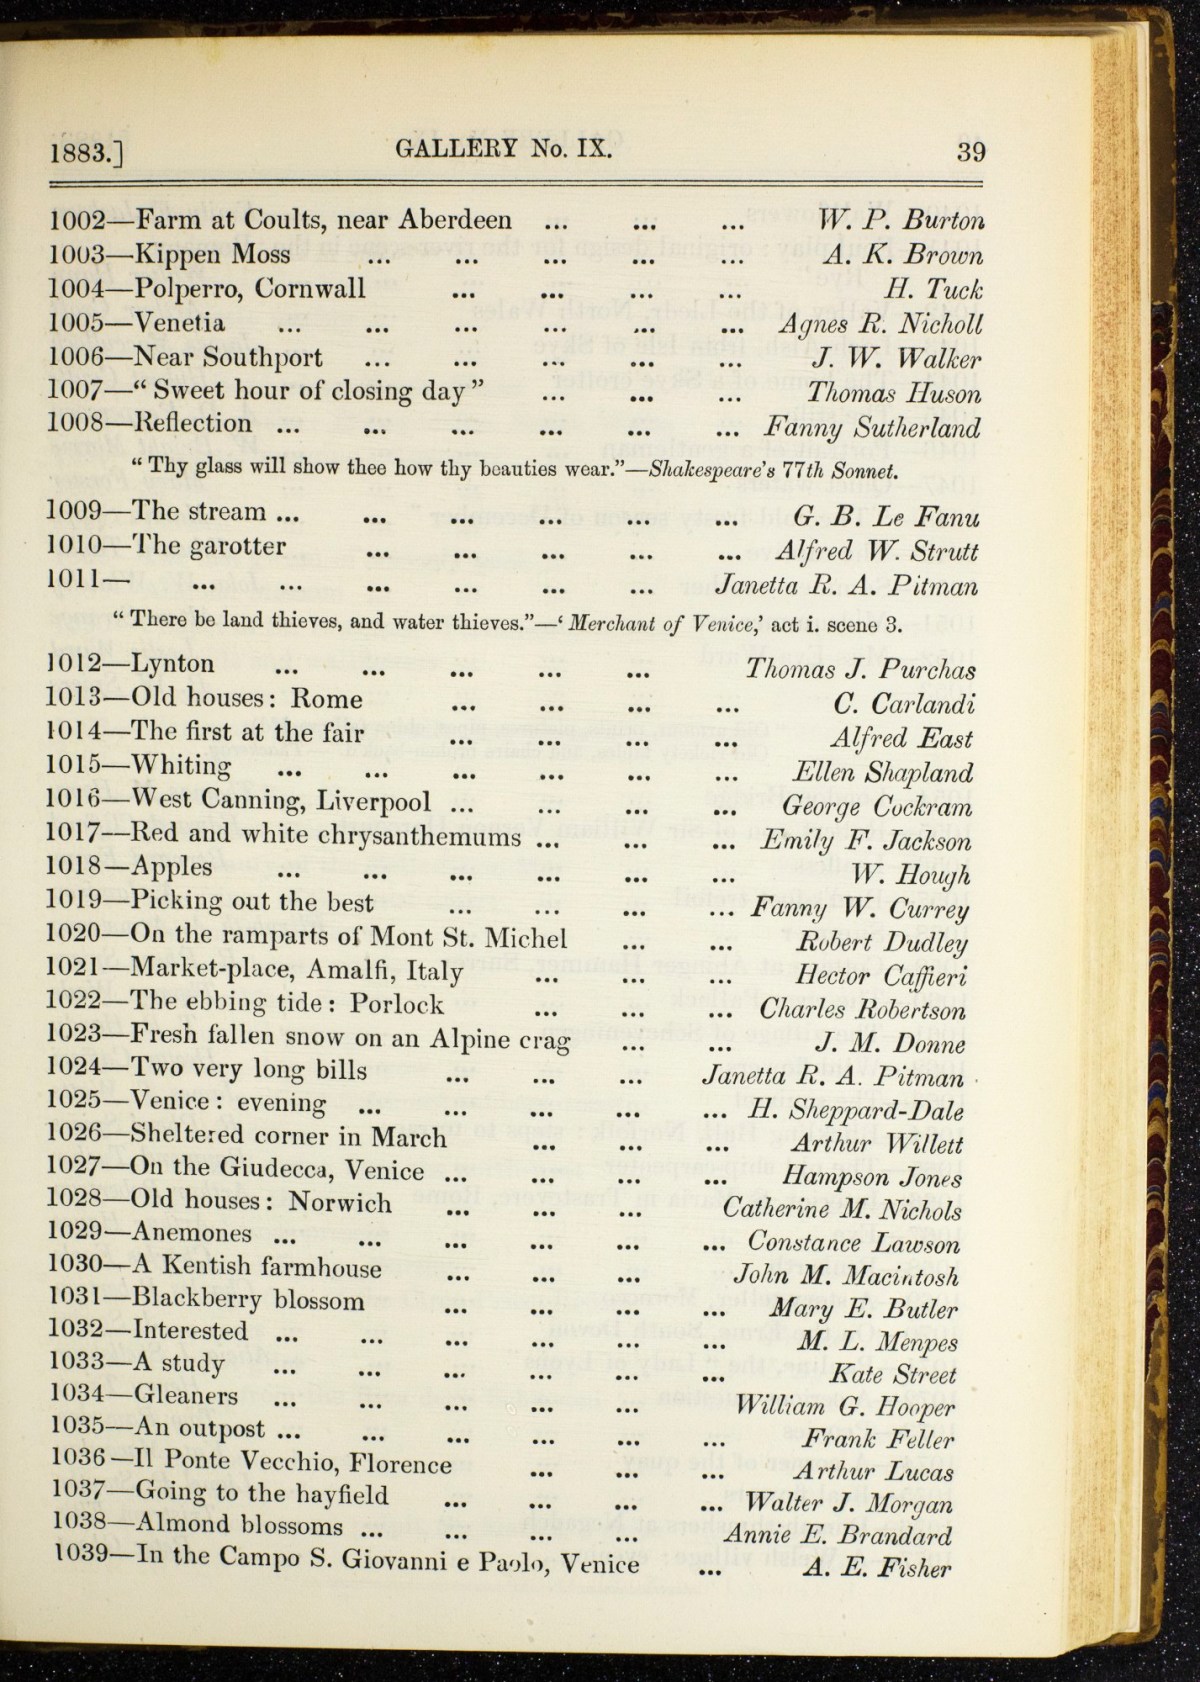 1883.] GALLERY No. IX. 39
1002—Farm at Coults, near Aberdeen ... ... ... W. P. Burton
1003—Kippen Moss ... ... ... ... ... A. K. Brown
1004—Polperro, Cornwall ... ... ... ... H. Tuck
1005—Venetia ... ... ... ... ... ... Agnes R. Nicholl
1006—Near Southport ... ... ... ... ... J. W. Walker
1007—“ Sweet hour of closing day ” ... ... ... Thomas Huson
1008—Reflection ... ... ... ... ... ... Fanny Sutherland
“ Thy glass will show thee how thy beauties wear.”—Shakespeare's 77th Sonnet.
1009—The stream ... ... ... ... ... ... G. B. Le Fanu
1010—The garotter ... ... ... ... ... Alfred W. Strutt
1011— ... ... ... ... ... ... Janetta R. A. Pitman
“ There be land thieves, and water thieves.”—‘ Merchant of Venice,’ act i. scene 3.
1012—Lynton ... ... ... ... ... Thomas J. Purchas
1013—Old houses: Rome ... ... ... ... C. Carlandi
1014—The first at the fair ... ... ... ... Alfred East
1015—Whiting ... ... ... ... ... ... Ellen Shapland
1016—West Canning, Liverpool ... ... ... ... George Cockram
1017—Red and white chrysanthemums ... ... ... Emily F. Jackson
1018—Apples ... ... ... ... ... ... W. Hough
1019—Picking out the best ... ... ... ... Fanny W. Currey
1020—On the ramparts of Mont St. Michel ... ... Robert Dudley
1021—Market-place, Amalfi, Italy ... ... ... Hector Caffieri
1022—The ebbing tide: Porlock ... ... ... Charles Robertson
1023—Fresh fallen snow on an Alpine crag ... ... J. M. Donne
1024—Two very long bills ... ... ... Janetta R. A. Pitman
1025—Venice: evening ... ... ... ... ... H. Sheppard-Dale
1026—Sheltered corner in March ... ... ... Arthur Willett
1027—On the Giudecca, Venice ... ... ... ... Hampson Jones
1028—Old houses: Norwich ... ... ... Catherine M. Nichols
1029—Anemones ... ... ... ... ... ... Constance Lawson
1030—A Kentish farmhouse ... ... ... John M. Macintosh
1031—Blackberry blossom ... ... ... ... Mary E. Butler
1032—Interested ... ... ... ... ... ... M. L. Menpes
1033—A study ... ... ... ... ... ... Kate Street
1034—Gleaners ... ... ... ... ... William G. Hooper
1035—An outpost ... ... ... ... ... ... Frank Feller
1036—Il Ponte Vecchio, Florence ... ... ... Arthur Lucas
1037—Going to the hayfield ... ... ... ... Walter J. Morgan
1038—Almond blossoms ... ... ... ... Annie E. Brandard
1039—In the Campo S. Giovanni e Paolo, Venice ... A. E. Fisher